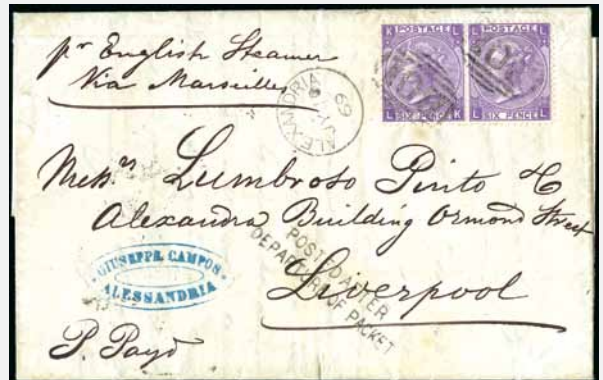 pr English Steamer
Via Marseilles
ALEXANDRIA
69
K POSTAGE L
L SIX PENCE K
L POSTAGE L
L SIX PENCE L
Messrs Lumbroso Pinto & C
Alexandra Building Ormond Street
Liverpool
POSTED AFTER
DEPARTURE OF PACKET
GIUSEPPE CAMPOS
ALESSANDRIA
P. Payd